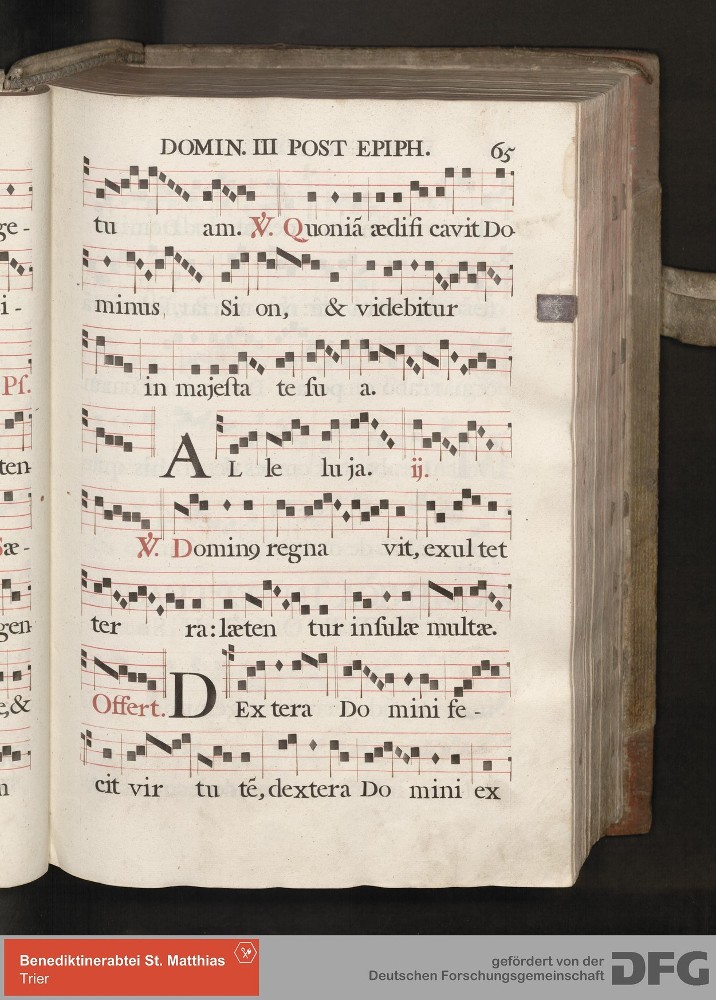 ge -
i -
Ps.
ten-
Sæ -
gen-
e, &
DOMIN. III POST EPIPH. 65
tu am. ℣. Quoniã ædifi cavit Do-
minus Si on, & videbitur
in majesta te su a.
AL le lu ja. ij.
℣. Dominꝰ regna vit, exul tet
ter ra: læten tur insulæ multæ.
Offert. DEx tera Do mini fe -
cit vir tu tẽ, dextera Do mini ex
Benediktinerabtei St. Matthias
Trier
gefördert von der
Deutschen Forschungsgemeinschaft
DFG